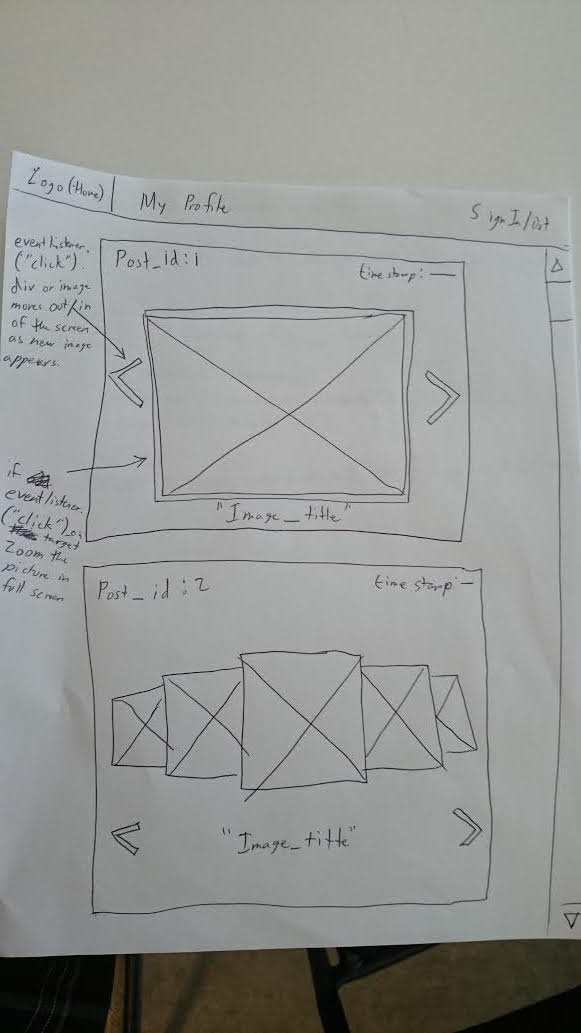 Logo (Home)
My Profile
Sign In/Out
event listener.
("click").
div or image
moves out/in
of the screen
as new image
appears.
Post_id:1
time stamp:
"Image_title"
if
event listener.
("click")
target
Zoom the
picture in
full screen
Post_id:2
time stamp:
"Image_title"